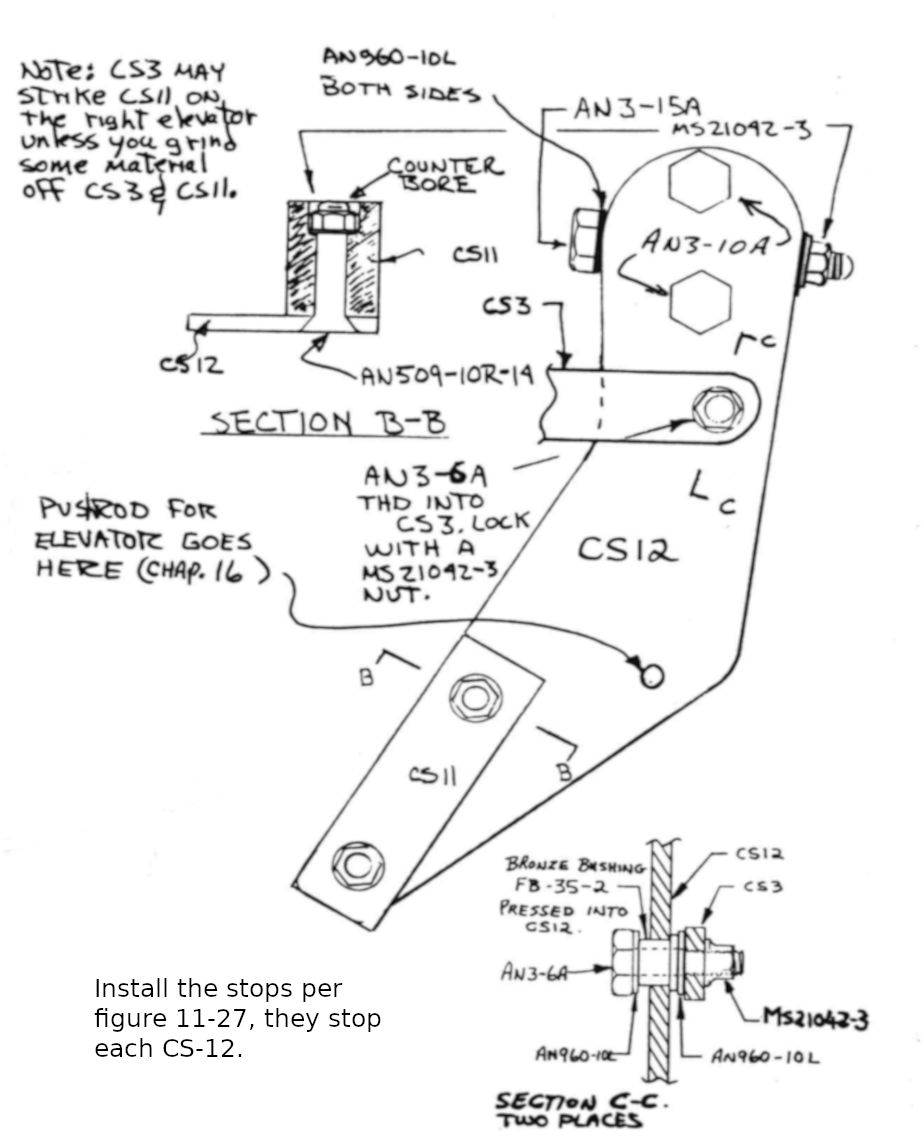 NOTE: CS3 MAY
STRIKE CS11 ON
the right elevator
unless you grind
some material
off CS3 & CS11.
AN960-10L
BOTH SIDES
AN3-15A
MS21042-3
COUNTER
BORE
CS11
CS12
AN509-10R-14
SECTION B-B
AN3-10A
CS3
C
AN3-6A
THD INTO
CS3. LOCK
WITH A
MS21042-3
NUT.
C
CS12
PUSHROD FOR
ELEVATOR GOES
HERE (CHAP. 16)
B
CS11
B
BRONZE BUSHING
FB-35-2
PRESSED INTO
CS12.
CS12
CS3
AN3-6A
MS21042-3
AN960-10L
AN960-10L
SECTION C-C.
TWO PLACES
Install the stops per
figure 11-27, they stop
each CS-12.